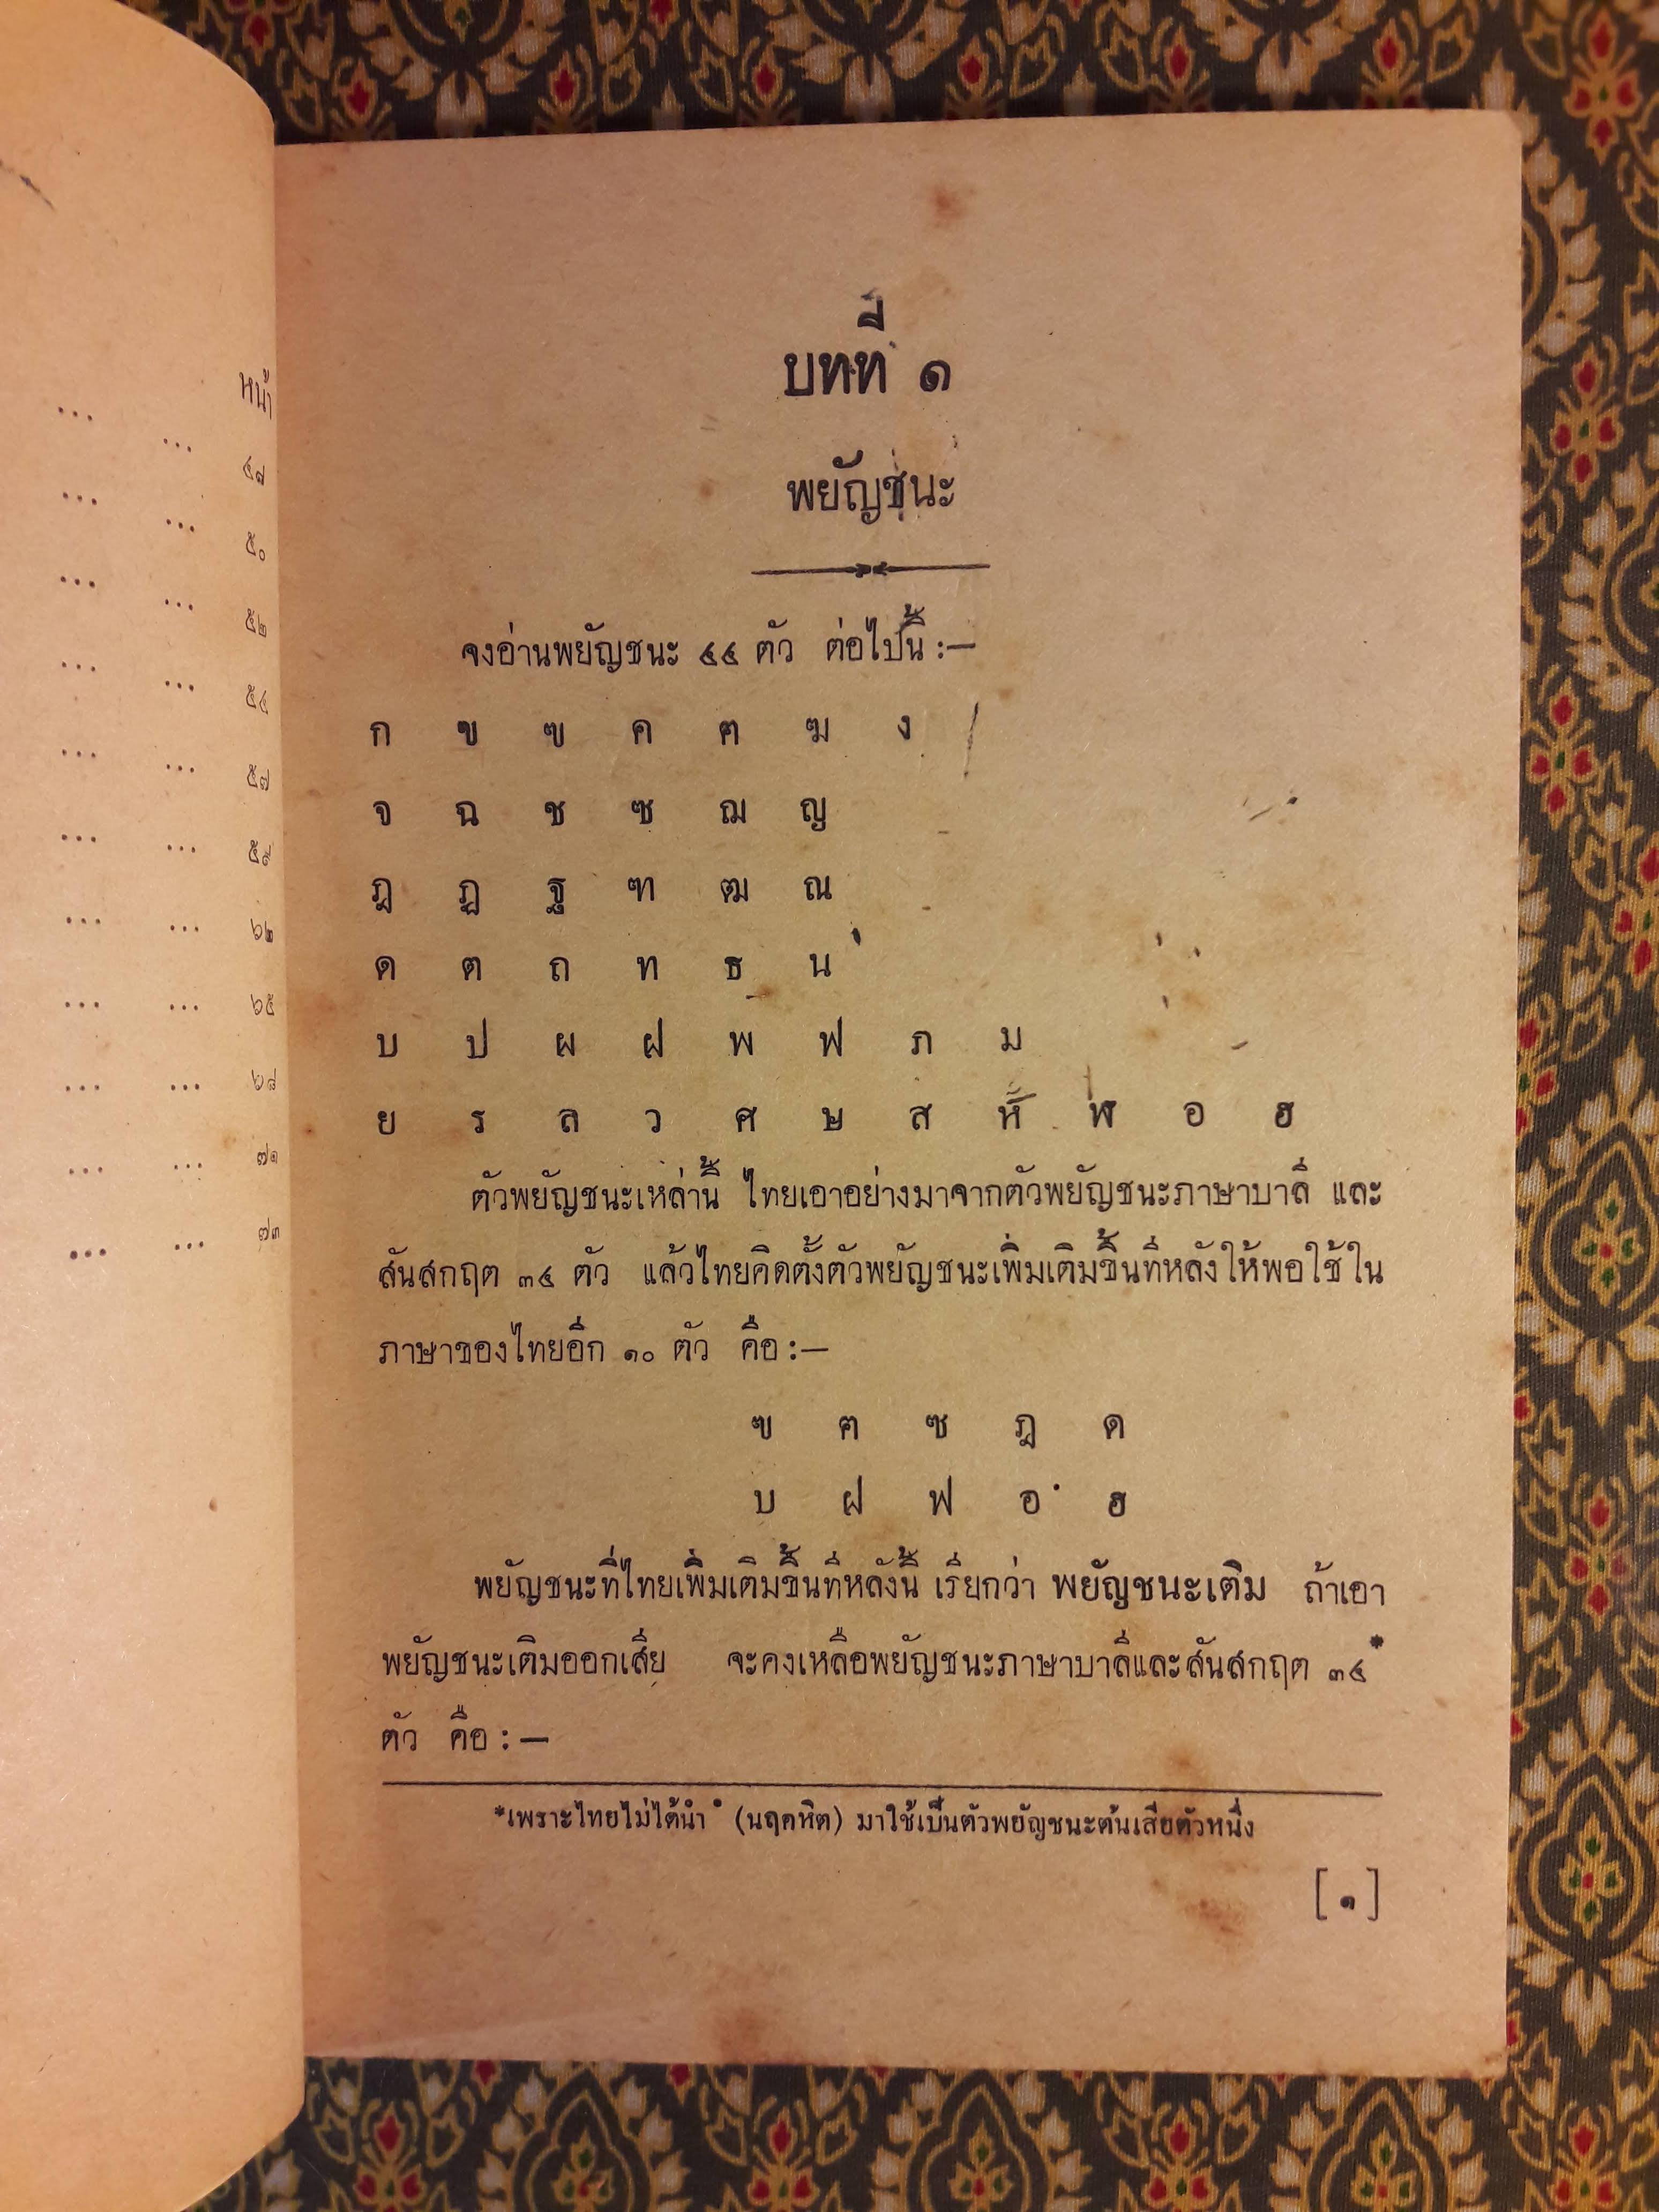 หน้า
... ... ๔๗
... ... ๕๐
... ... ๕๒
... ... ๕๔
... ... ๕๗
... ... ๕๙
... ... ๖๒
... ... ๖๕
... ... ๖๘
... ... ๗๑
... ... ๗๓
บทที่ ๑
พยัญชนะ
จงอ่านพยัญชนะ ๔๔ ตัว ต่อไปนี้ :—
ก ข ฃ ค ฅ ฆ ง
จ ฉ ช ซ ฌ ญ
ฎ ฏ ฐ ฑ ฒ ณ
ด ต ถ ท ธ น
บ ป ผ ฝ พ ฟ ภ ม
ย ร ล ว ศ ษ ส ห ฬ อ ฮ
ตัวพยัญชนะเหล่านี้ ไทยเอาอย่างมาจากตัวพยัญชนะภาษาบาลี และ
สันสกฤต ๓๔ ตัว แล้วไทยคิดตั้งตัวพยัญชนะเพิ่มเติมขึ้นทีหลังให้พอใช้ใน
ภาษาของไทยอีก ๑๐ ตัว คือ :—
ฃ ฅ ซ ฎ ด
บ ฝ ฟ อ ฮ
พยัญชนะที่ไทยเพิ่มเติมขึ้นทีหลังนี้ เรียกว่า พยัญชนะเติม ถ้าเอา
พยัญชนะเติมออกเสีย จะคงเหลือพยัญชนะภาษาบาลีและสันสกฤต ๓๔*
ตัว คือ :—
*เพราะไทยไม่ได้นำ ํ (นฤคหิต) มาใช้เป็นตัวพยัญชนะต้นเสียตัวหนึ่ง
[ ๑ ]